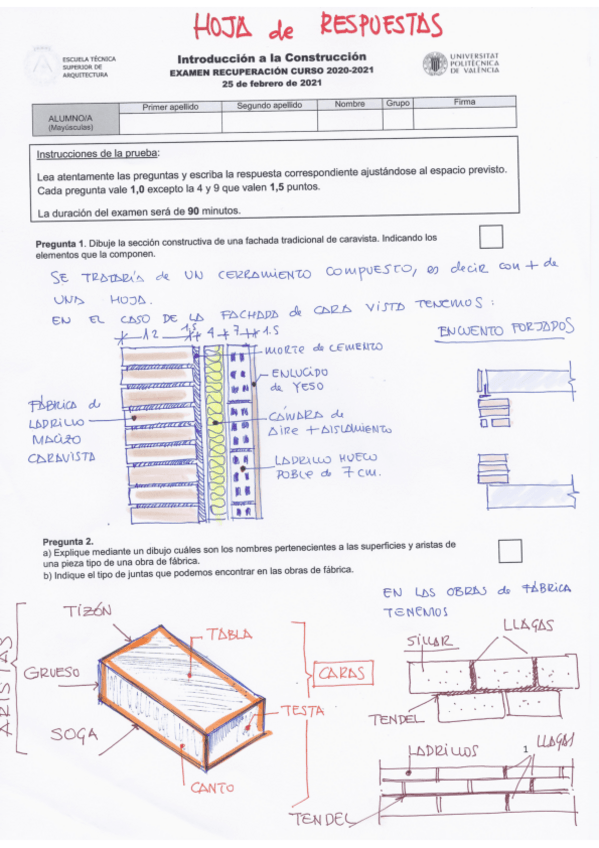 HOJA de RESPUESTAS
ESCUELA TÉCNICA
SUPERIOR DE
ARQUITECTURA
Introducción a la Construcción
EXAMEN RECUPERACIÓN CURSO 2020-2021
25 de febrero de 2021
UNIVERSITAT
POLITÈCNICA
DE VALÈNCIA
ALUMNO/A
(Mayúsculas)
Primer apellido
Segundo apellido
Nombre
Grupo
Firma
Instrucciones de la prueba:
Lea atentamente las preguntas y escriba la respuesta correspondiente ajustándose al espacio previsto.
Cada pregunta vale 1,0 excepto la 4 y 9 que valen 1,5 puntos.
La duración del examen será de 90 minutos.
Pregunta 1. Dibuje la sección constructiva de una fachada tradicional de caravista. Indicando los
elementos que la componen.
SE TRATARÍA de UN CERRAMIENTO COMPUESTO, es decir con + de
UNA HOJA.
EN EL CASO DE LA FACHADA de CARA VISTA TENEMOS:
12 1,5 4 7 1.5
ENCUENTO FORJADOS
MORTE de CEMENTO
ENLUCIDO
de YESO
FÁBRICA de
LADRILLO
MACIZO
CARAVISTA
CÁMARA de
AIRE + AISLAMIENTO
LADRILLO HUECO
DOBLE de 7 cm.
Pregunta 2.
a) Explique mediante un dibujo cuáles son los nombres pertenecientes a las superficies y aristas de
una pieza tipo de una obra de fábrica.
b) Indique el tipo de juntas que podemos encontrar en las obras de fábrica.
EN LAS OBRAS de FÁBRICA
TENEMOS
TIZÓN
TABLA
LLAGAS
SILLAR
ARISTAS
GRUESO
CARAS
SOGA
TESTA
TENDEL
CANTO
LADRILLOS
1
LLAGAS
TENDEL